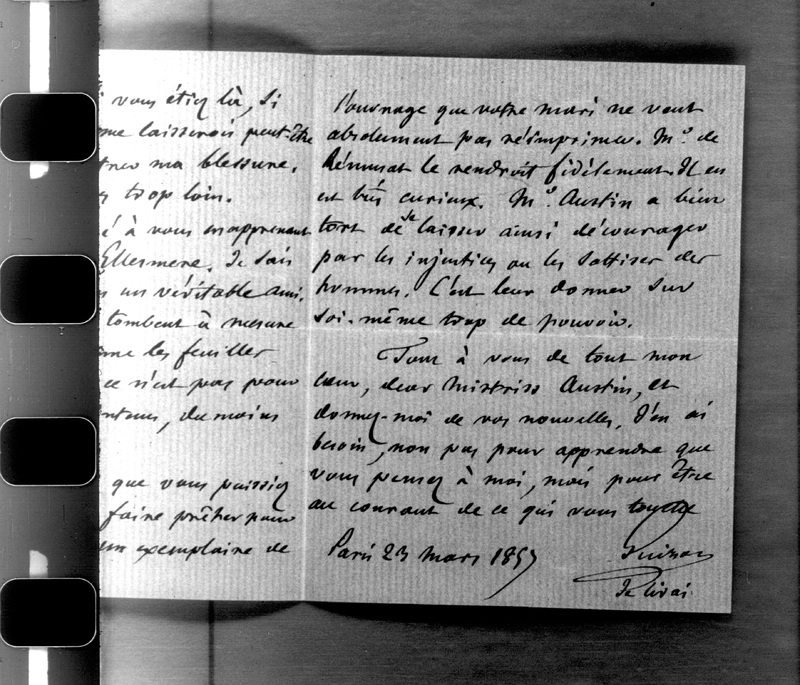 vous étiez là, si
me laisserois peut-être
ma blessure.
trop loin.
é à vous en apprenant
Ellesmere. Je sais
un véritable ami.
tombent à mesure
me les feuilles
ce n'est pas pour
, du moins
que vous puissiez
faire prêter pour
un exemplaire de
l'ouvrage que votre mari ne veut
absolument pas réimprimer. Mr. de
Rémusat le rendroit fidèlement. Il en
est très curieux. Mr. Austin a bien
tort de se laisser ainsi décourager
par les injustices ou les sottises des
hommes. C'est leur donner sur
soi-même trop de pouvoir.
Tout à vous de tout mon
cœur, dear Mistriss Austin, et
donnez-moi de vos nouvelles. J'en ai
besoin, non pas pour apprendre que
vous pensez à moi, mais pour être
au courant de ce qui vous touche
Paris 23 Mars 1857
Guizot